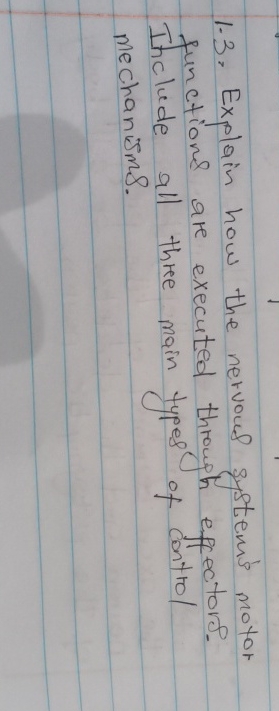 1.3. Explain how the nervous system's motor
functions are executed through effectors.
Include all three main types of control
mechanisms.